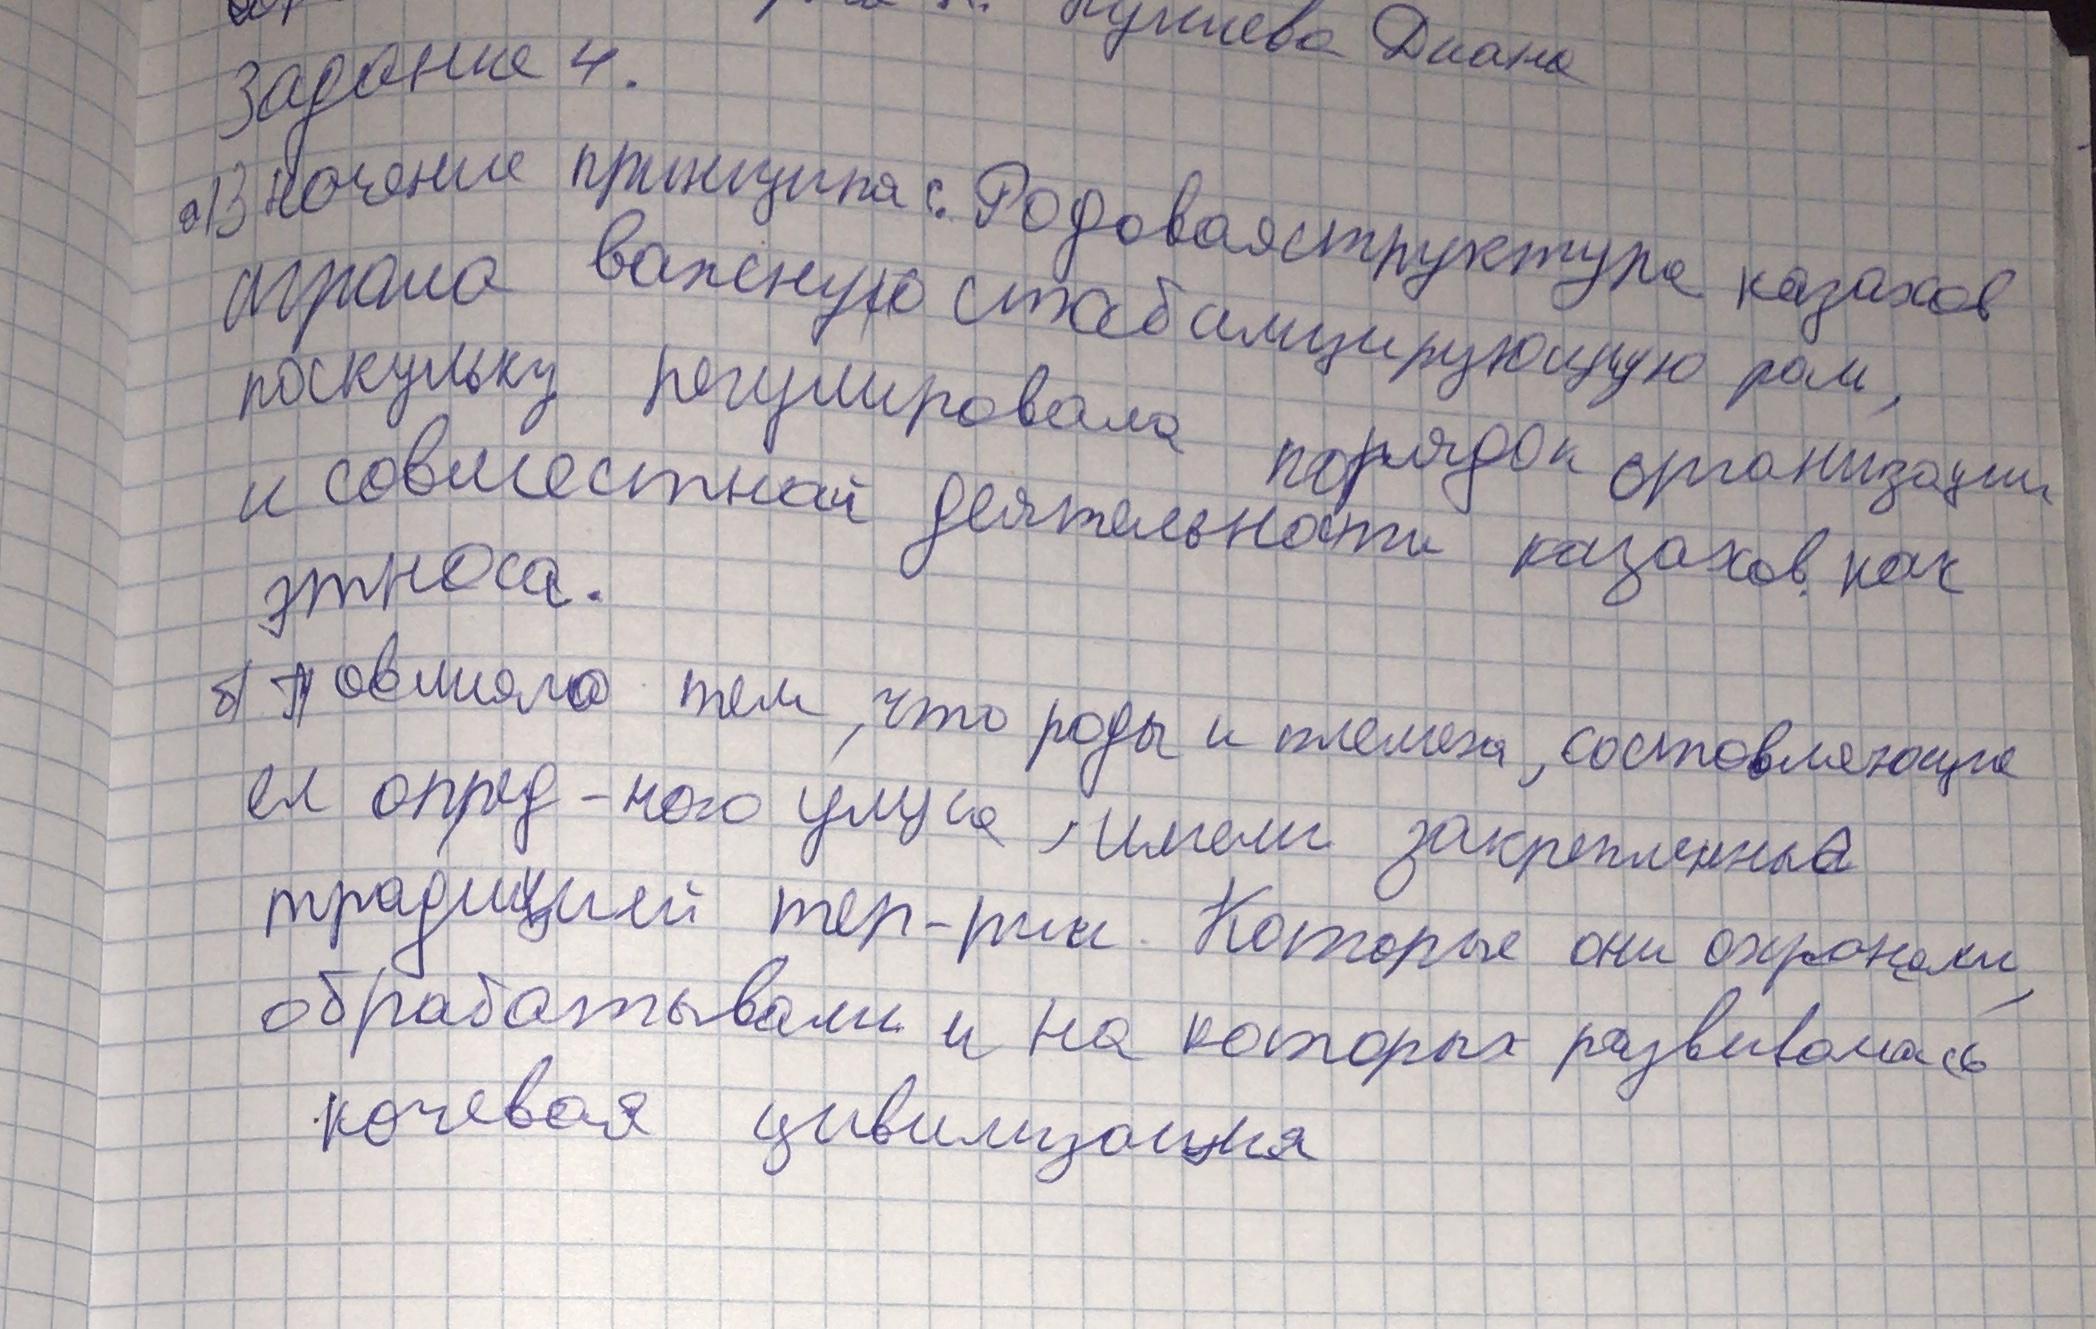 Диана
Задание 4.
а) Значение принципа с. Родовая структура казахов
играла важную стабилицирующую роли,
поскульку регулировала порядок организации
и совместной деятельности казахов как
этноса.
б) Повлияло тем, что роды и племена, состовляющие
ел опред-ного улуса, имели закрепленные
традицией тер-рии. Которые они охраняли,
обрабатывали и на которых развивалась
кочевая цивилизация